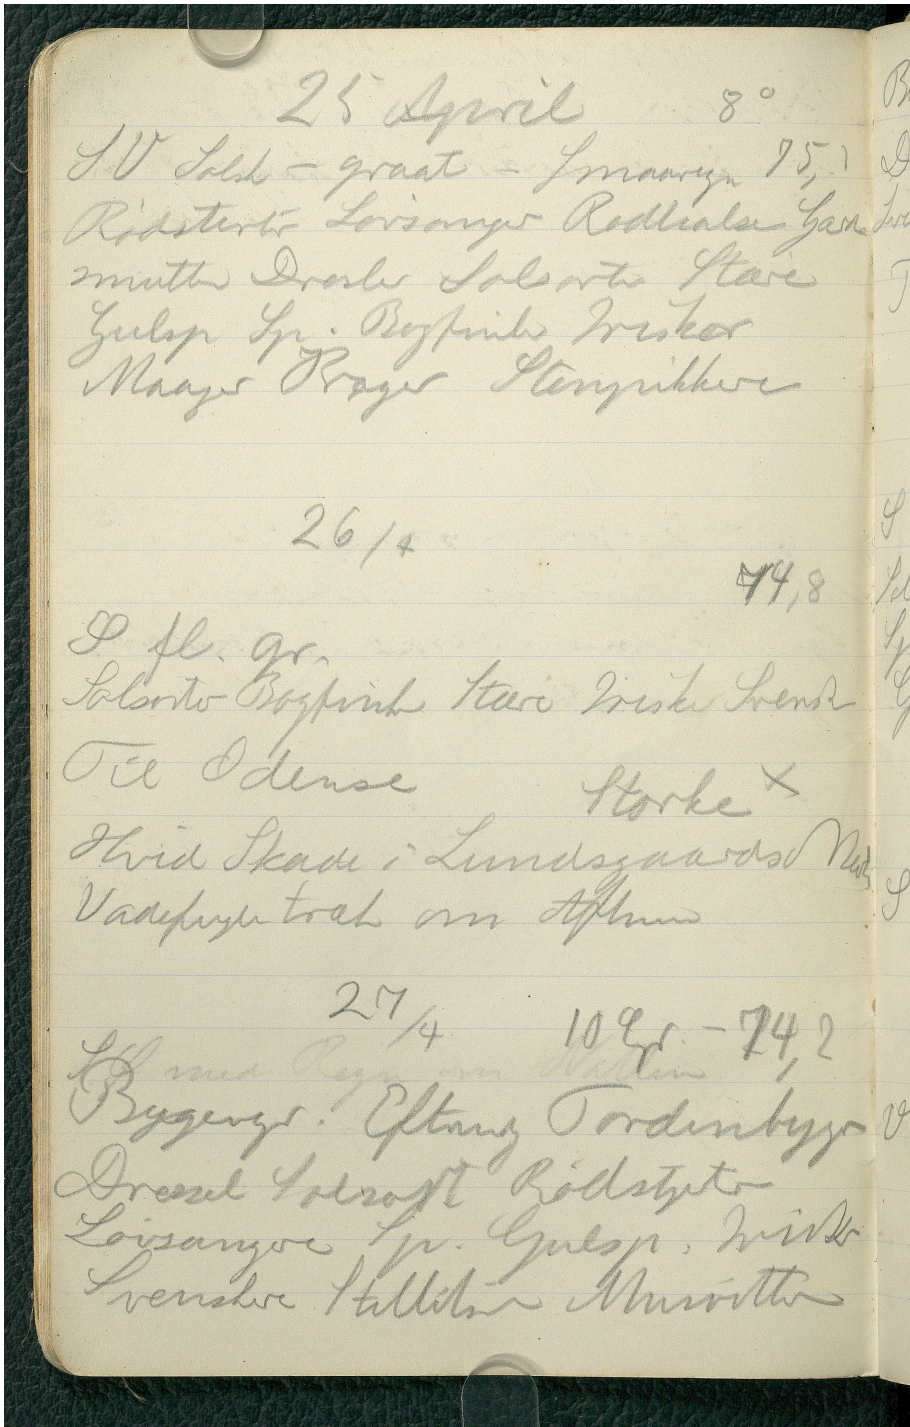 25 April 8°
SV Solsk - graat - Smaaregn 75,
Rødsterter Løvsanger Rødkælke Gærde
smutte Drosler Solsorte Stære
Gulsp Sp. Bogfinke Irisker
Maager Krager Stenpikkere
26/4
74,8
S fl. gr.
Solsorter Bogfinke Stære Iriske Svensk
Til Odense Storke x
Hvid Skade i Lundsgaards
Vadefugletræk om Aftnen
27/4 10 Gr - 74,2
med Regn om Natten
Bygevejr. Eftrmdg Tordenbyger
Dræsel Solsort Rødstjeter
Løvsangere Sp. Gulsp. Irisker
Svenskere Stillitser Musvitter